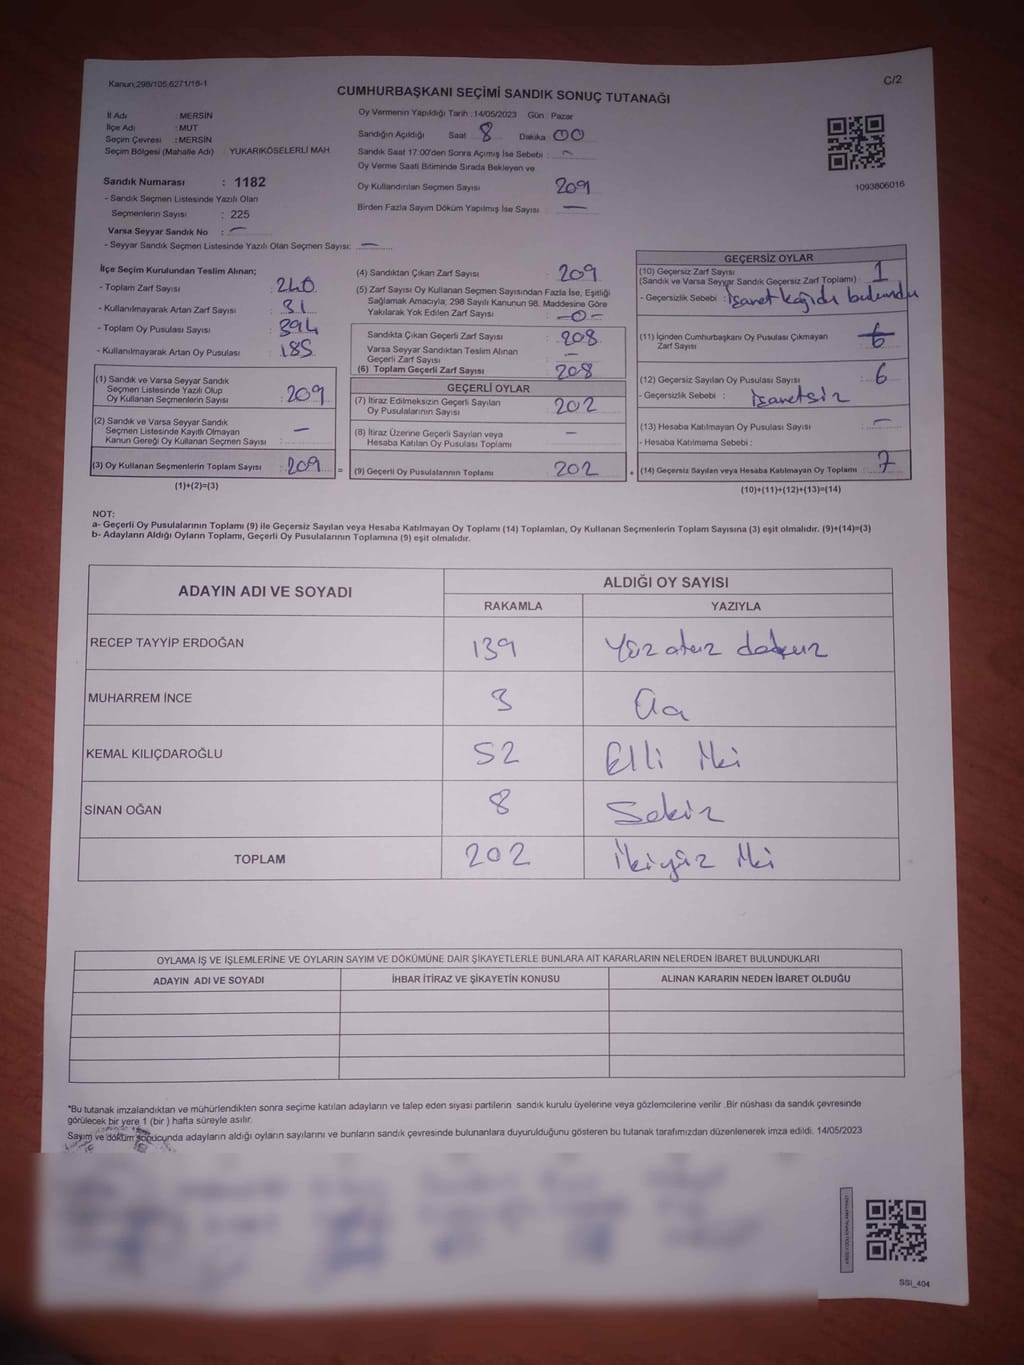 Kanun:298/105,6271/16-1
C/2
CUMHURBAŞKANI SEÇİMİ SANDIK SONUÇ TUTANAĞI
İl Adı : MERSİN
İlçe Adı : MUT
Seçim Çevresi : MERSİN
Seçim Bölgesi (Mahalle Adı) : YUKARIKÖSELERLİ MAH.
Sandık Numarası : 1182
- Sandık Seçmen Listesinde Yazılı Olan
Seçmenlerin Sayısı : 225
Varsa Seyyar Sandık No : —
- Seyyar Sandık Seçmen Listesinde Yazılı Olan Seçmen Sayısı: —
Oy Vermenin Yapıldığı Tarih :14/05/2023 Gün Pazar
Sandığın Açıldığı Saat 8 Dakika 00
Sandık Saat 17:00'den Sonra Açımış İse Sebebi : —
Oy Verme Saati Bitiminde Sırada Bekleyen ve
Oy Kullandırılan Seçmen Sayısı 209
Birden Fazla Sayım Döküm Yapılmış İse Sayısı —
1093806016
İlçe Seçim Kurulundan Teslim Alınan;
- Toplam Zarf Sayısı : 240
- Kullanılmayarak Artan Zarf Sayısı : 31
- Toplam Oy Pusulası Sayısı : 394
- Kullanılmayarak Artan Oy Pusulası : 185
(1) Sandık ve Varsa Seyyar Sandık
Seçmen Listesinde Yazılı Olup
Oy Kullanan Seçmenlerin Sayısı : 209
(2) Sandık ve Varsa Seyyar Sandık
Seçmen Listesinde Kayıtlı Olmayan
Kanun Gereği Oy Kullanan Seçmen Sayısı : —
(3) Oy Kullanan Seçmenlerin Toplam Sayısı : 209 =
(1)+(2)=(3)
(4) Sandıktan Çıkan Zarf Sayısı : 209
(5) Zarf Sayısı Oy Kullanan Seçmen Sayısından Fazla İse, Eşitliği
Sağlamak Amacıyla, 298 Sayılı Kanunun 98. Maddesine Göre
Yakılarak Yok Edilen Zarf Sayısı : -0-
Sandıkta Çıkan Geçerli Zarf Sayısı : 208
Varsa Seyyar Sandıktan Teslim Alınan
Geçerli Zarf Sayısı —
(6) Toplam Geçerli Zarf Sayısı : 208
GEÇERLİ OYLAR
(7) İtiraz Edilmeksizin Geçerli Sayılan
Oy Pusulalarının Sayısı : 202
(8) İtiraz Üzerine Geçerli Sayılan veya
Hesaba Katılan Oy Pusulası Toplamı : —
(9) Geçerli Oy Pusulalarının Toplamı : 202 +
GEÇERSİZ OYLAR
(10) Geçersiz Zarf Sayısı
(Sandık ve Varsa Seyyar Sandık Geçersiz Zarf Toplamı) : 1
- Geçersizlik Sebebi : İşaret kağıdı bulundu
(11) İçinden Cumhurbaşkanı Oy Pusulası Çıkmayan
Zarf Sayısı : 6
(12) Geçersiz Sayılan Oy Pusulası Sayısı : 6
- Geçersizlik Sebebi : İşaretsiz
(13) Hesaba Katılmayan Oy Pusulası Sayısı : —
- Hesaba Katılmama Sebebi :
(14) Geçersiz Sayılan veya Hesaba Katılmayan Oy Toplamı : 7
(10)+(11)+(12)+(13)=(14)
NOT:
a- Geçerli Oy Pusulalarının Toplamı (9) ile Geçersiz Sayılan veya Hesaba Katılmayan Oy Toplamı (14) Toplamları, Oy Kullanan Seçmenlerin Toplam Sayısına (3) eşit olmalıdır. (9)+(14)=(3)
b- Adayların Aldığı Oyların Toplamı, Geçerli Oy Pusulalarının Toplamına (9) eşit olmalıdır.
ADAYIN ADI VE SOYADI
ALDIĞI OY SAYISI
RAKAMLA YAZIYLA
RECEP TAYYİP ERDOĞAN 139 Yüz otuz dokuz
MUHARREM İNCE 3
KEMAL KILIÇDAROĞLU 52 Elli iki
SİNAN OĞAN 8 Sekiz
TOPLAM 202 İkiyüz iki
OYLAMA İŞ VE İŞLEMLERİNE VE OYLARIN SAYIM VE DÖKÜMÜNE DAİR ŞİKAYETLERLE BUNLARA AİT KARARLARIN NELERDEN İBARET BULUNDUKLARI
ADAYIN ADI VE SOYADI İHBAR İTİRAZ VE ŞİKAYETİN KONUSU ALINAN KARARIN NEDEN İBARET OLDUĞU
*Bu tutanak imzalandıktan ve mühürlendikten sonra seçime katılan adayların ve talep eden siyasi partilerin sandık kurulu üyelerine veya gözlemcilerine verilir .Bir nüshası da sandık çevresinde
görülecek bir yere 1 (bir ) hafta süreyle asılır.
Sayım ve döküm sonucunda adayların aldığı oyların sayılarını ve bunların sandık çevresinde bulunanlara duyurulduğunu gösteren bu tutanak tarafımızdan düzenlenerek imza edildi. 14/05/2023
SSI_404